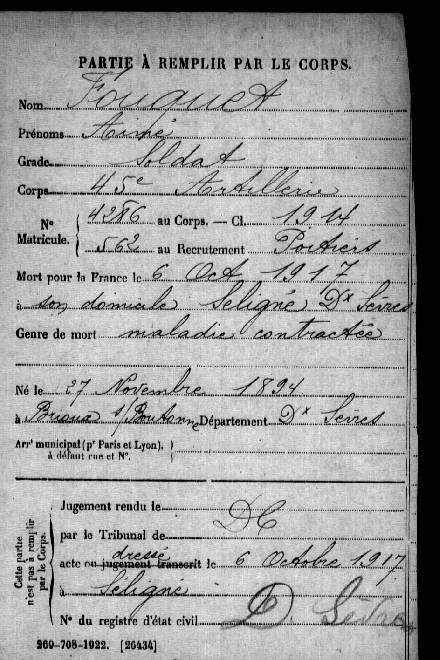 PARTIE À REMPLIR PAR LE CORPS.
Nom Fouquet
Prénoms Aimé
Grade Soldat
Corps 45e Artillerie
N° Matricule. 4286 au Corps. — Cl. 1914
562 au Recrutement Poitiers
Mort pour la France le 6 Oct 1917
à son domicile Séligné Dx Sèvres
Genre de mort maladie contractée
Né le 27 Novembre 1894
à Brioux s/ Boutonne Département Dx Sèvres
Arr' municipal (p' Paris et Lyon),
à défaut rue et N°.
Cette partie n'est pas à remplir par le Corps.
Jugement rendu le
par le Tribunal de DC
acte ou jugement transcrit dressé le 6 Octobre 1917
à Séligné
N° du registre d'état civil D. Sèvres
269-708-1922. [26434]